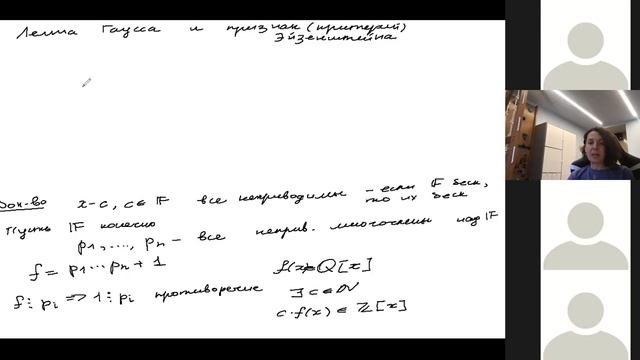 Лемма Гаусса и признак (критерий)
Эйзенштейна
Док-во x-c, c∈F все неприводимы – если F беск,
то их беск
Пусть F конечно
p1, ..., pn – все неприв. многочлены над F
f = p1 ... pn + 1
f ⋮ pi => 1 ⋮ pi противоречие
f(x)∈Q[x]
∃ c∈N
c·f(x) ∈ Z[x]